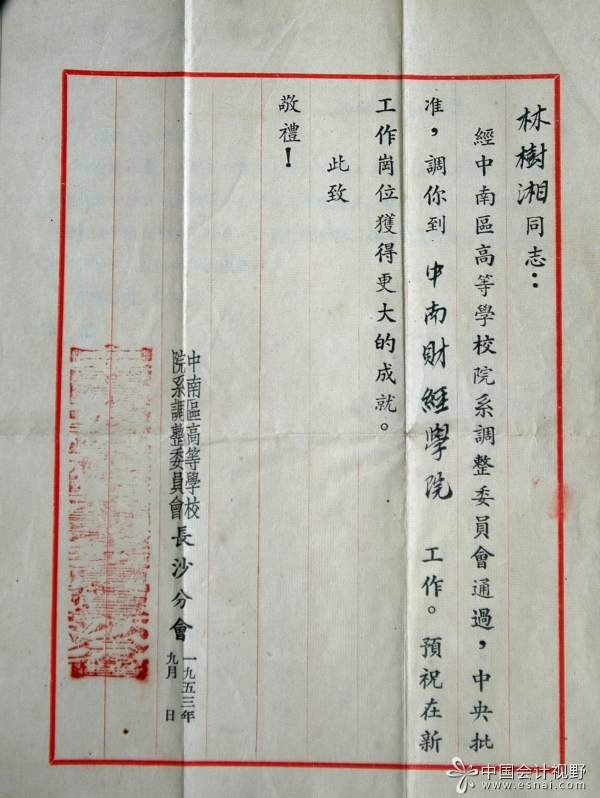 林樹湘同志：
經中南區高等學校院系調整委員會通過，中央批
准，調你到 中南財經學院 工作。預祝在新
工作崗位獲得更大的成就。
此致
敬禮！
中南區高等學校
院系調整委員會
長沙分會
一九五三年
九月 日
中国会计视野
www.esnai.com